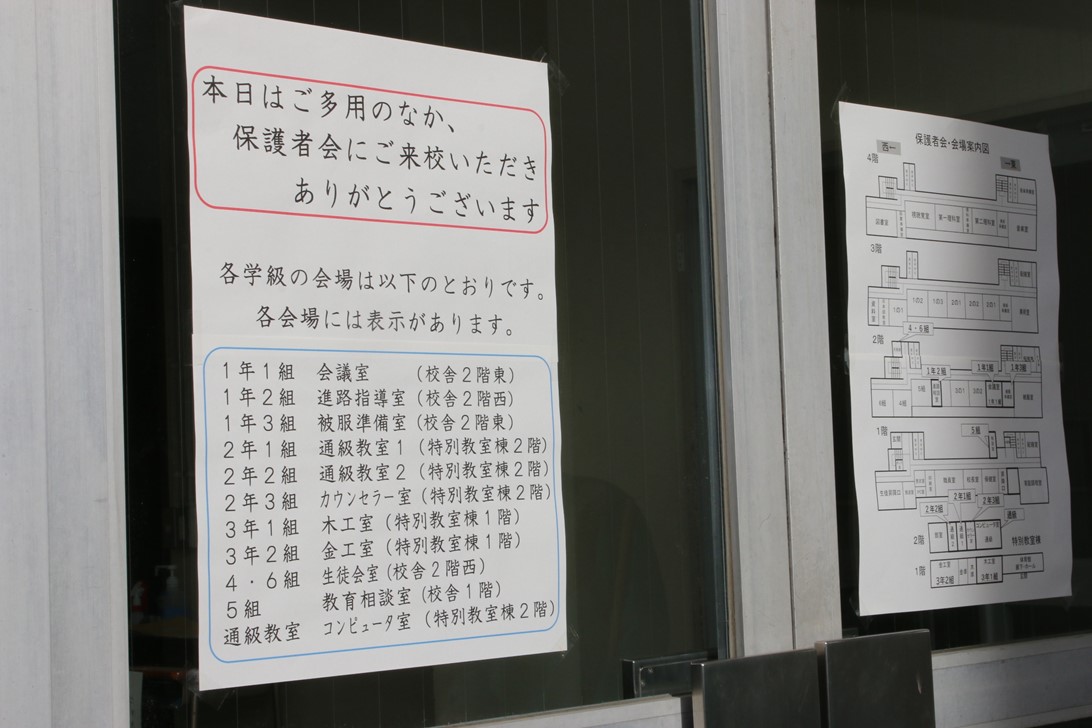 本日はご多用のなか、
保護者会にご来校いただき
ありがとうございます
各学級の会場は以下のとおりです。
各会場には表示があります。
1年1組 会議室 (校舎2階東)
1年2組 進路指導室 (校舎2階西)
1年3組 被服準備室 (校舎2階東)
2年1組 通級教室1 (特別教室棟2階)
2年2組 通級教室2 (特別教室棟2階)
2年3組 カウンセラー室 (特別教室棟2階)
3年1組 木工室 (特別教室棟1階)
3年2組 金工室 (特別教室棟1階)
4・6組 生徒会室 (校舎2階西)
5組 教育相談室 (校舎1階)
通級教室 コンピュータ室 (特別教室棟2階)
保護者会・会場案内図
4階
図書室 第一理科室 第二理科室
3階
1の1 1の2 1の3 2の1 2の2 3の1
2階
4・6組
1年2組 1年1組 1年3組
6組 4組 5組 3の1 3の2
1階
5組
職員室 校長室
2年1組 2年3組
2年2組 通級
コンピュータ室
2階 特別教室棟
1階 金工室 木工室
3年2組 3年1組